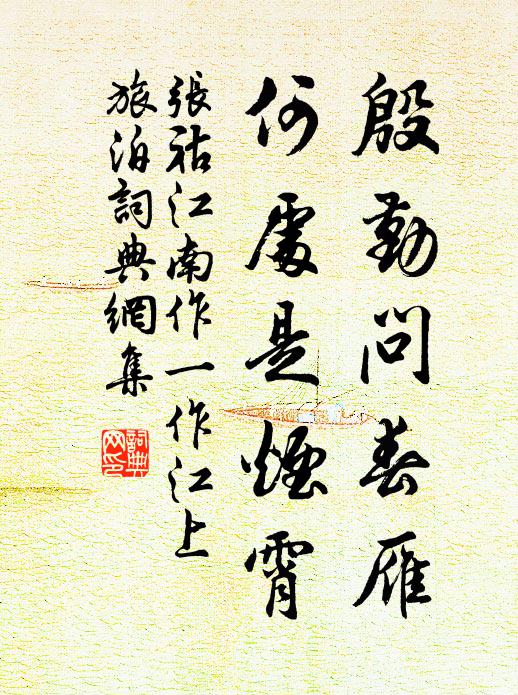 殷勤問春雁
何處是煙霄
張祜江南作一作江上
旅泊詞典網集
詞典网印